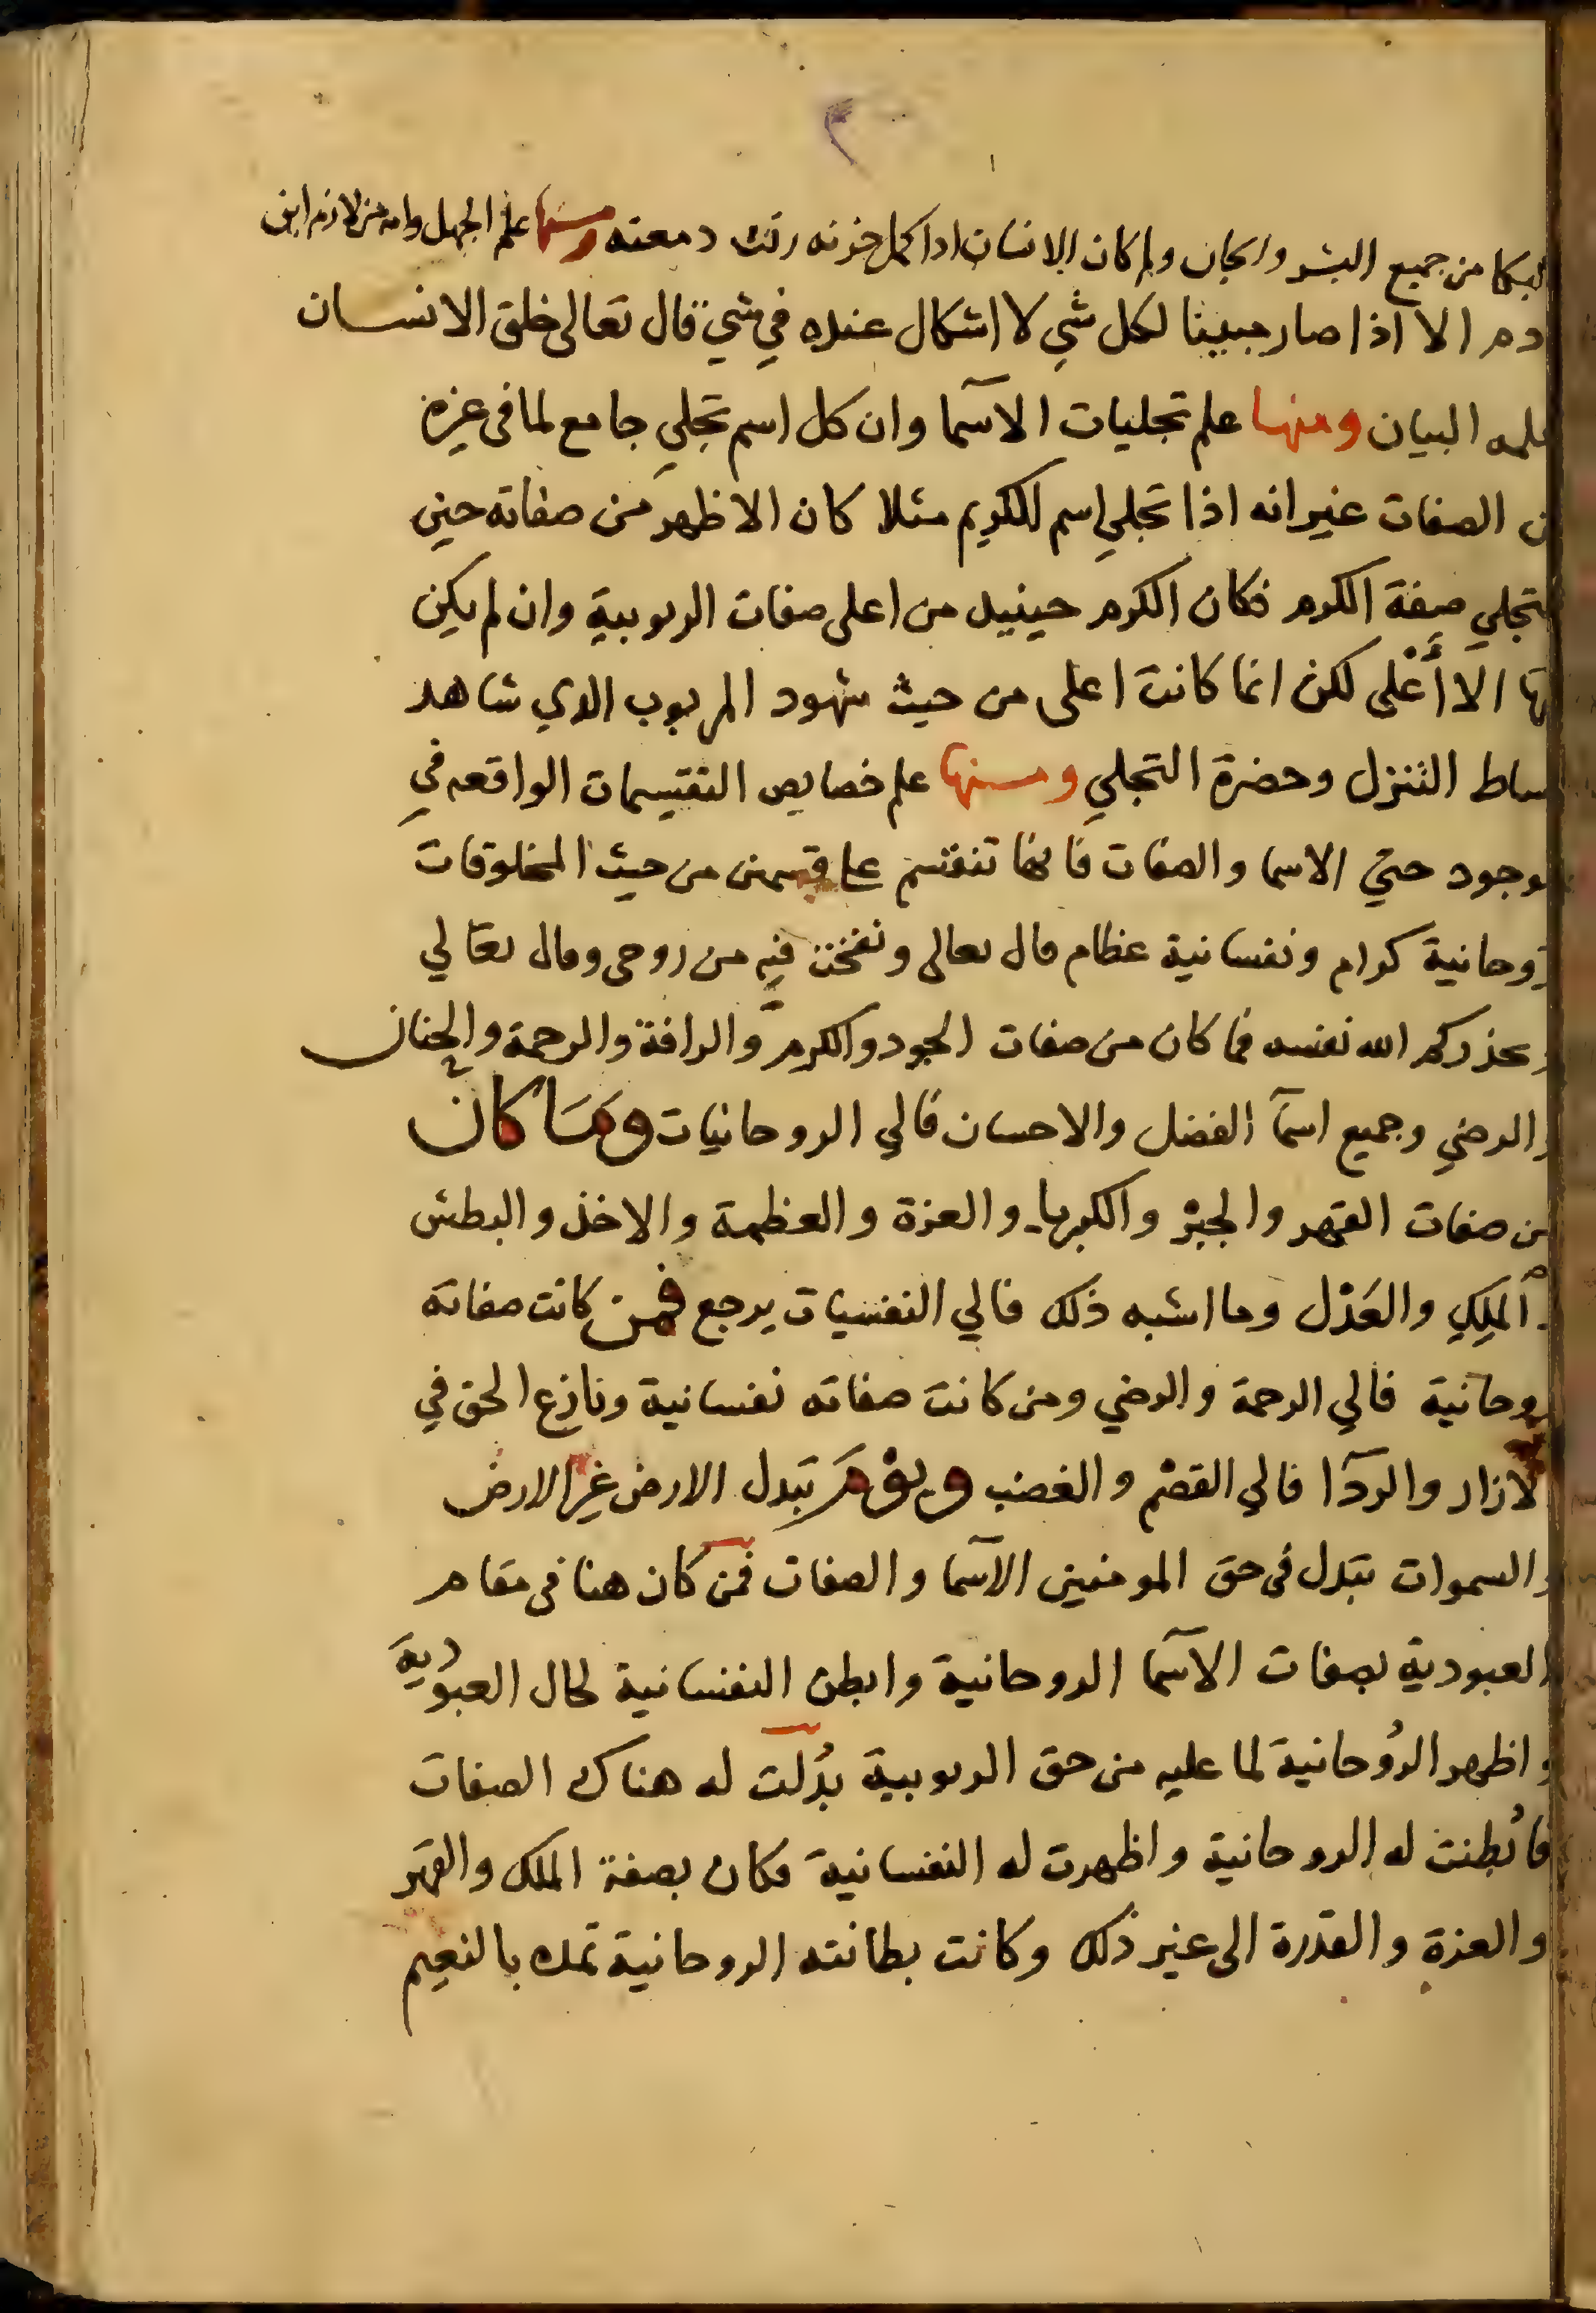 البكا من جميع البشر والجان ولم كان الانسان اذا كمل حزنه رقت دمعته ومنها علم الجهل وانه من لازم ابن
ادم الا اذا صار مبينا لكل شي لا اشكال عنده في شي قال تعالى خلق الانسان
علمه البيان ومنها علم تجليات الاسما وان كل اسم تجلي جامع لما فى غيره
من الصفات غير انه اذا تجلي اسم الكريم مثلا كان الاظهر من صفاته حين
التجلي صفة الكرم فكان الكرم حينيذ من اعلى صفات الربوبية وان لم يكن
الا أَعْلى لكن انما كانت اعلى من حيث شهود المربوب الذي شاهد
بساط التنزل وحضرة التجلي ومنها علم خصايص التقسيمات الواقعه في
الوجود حتي الاسما والصفات فانها تنقسم على قسمين من حيث المخلوقات
روحانية كرام ونفسانية عظام قال تعالى ونفخت فيه من روحى وقال تعالي
ويحذركم الله نفسه فما كان من صفات الجود والكرم والرافة والرحمة والحنان
والرضي وجميع اسمآ الفضل والاحسان فالي الروحانيات وَمَا كان
من صفات القهر والجبر والكبريا والعزة والعظمة والاخذ والبطش
والملِكِ والعَدْل وما اشبه ذلك فالي النفسيات يرجع فمن كانت صفاته
روحانية فالي الرحمة والرضي ومن كانت صفاته نفسانية ونازع الحق في
الازار والردآ فالي القصْم والغضب ويوْمَ تبدل الارض غير الارض
والسموات تبدل فى حق المومنين الاسمآ والصفات فمن كان هنا فى مقام
العبودية بصفات الاسمآ الروحانية وابطن النفسانية لحال العبودية
واظهر الرُوحانية لما عليه من حق الربوبية بُدلت له هناك الصفات
فابُطنت له الروحانية واظهرت له النفسانية فكان بصفة الملك والقهر
والعزة والقدرة الى غير ذلك وكانت بطانته الروحانية تمده بالنعيم